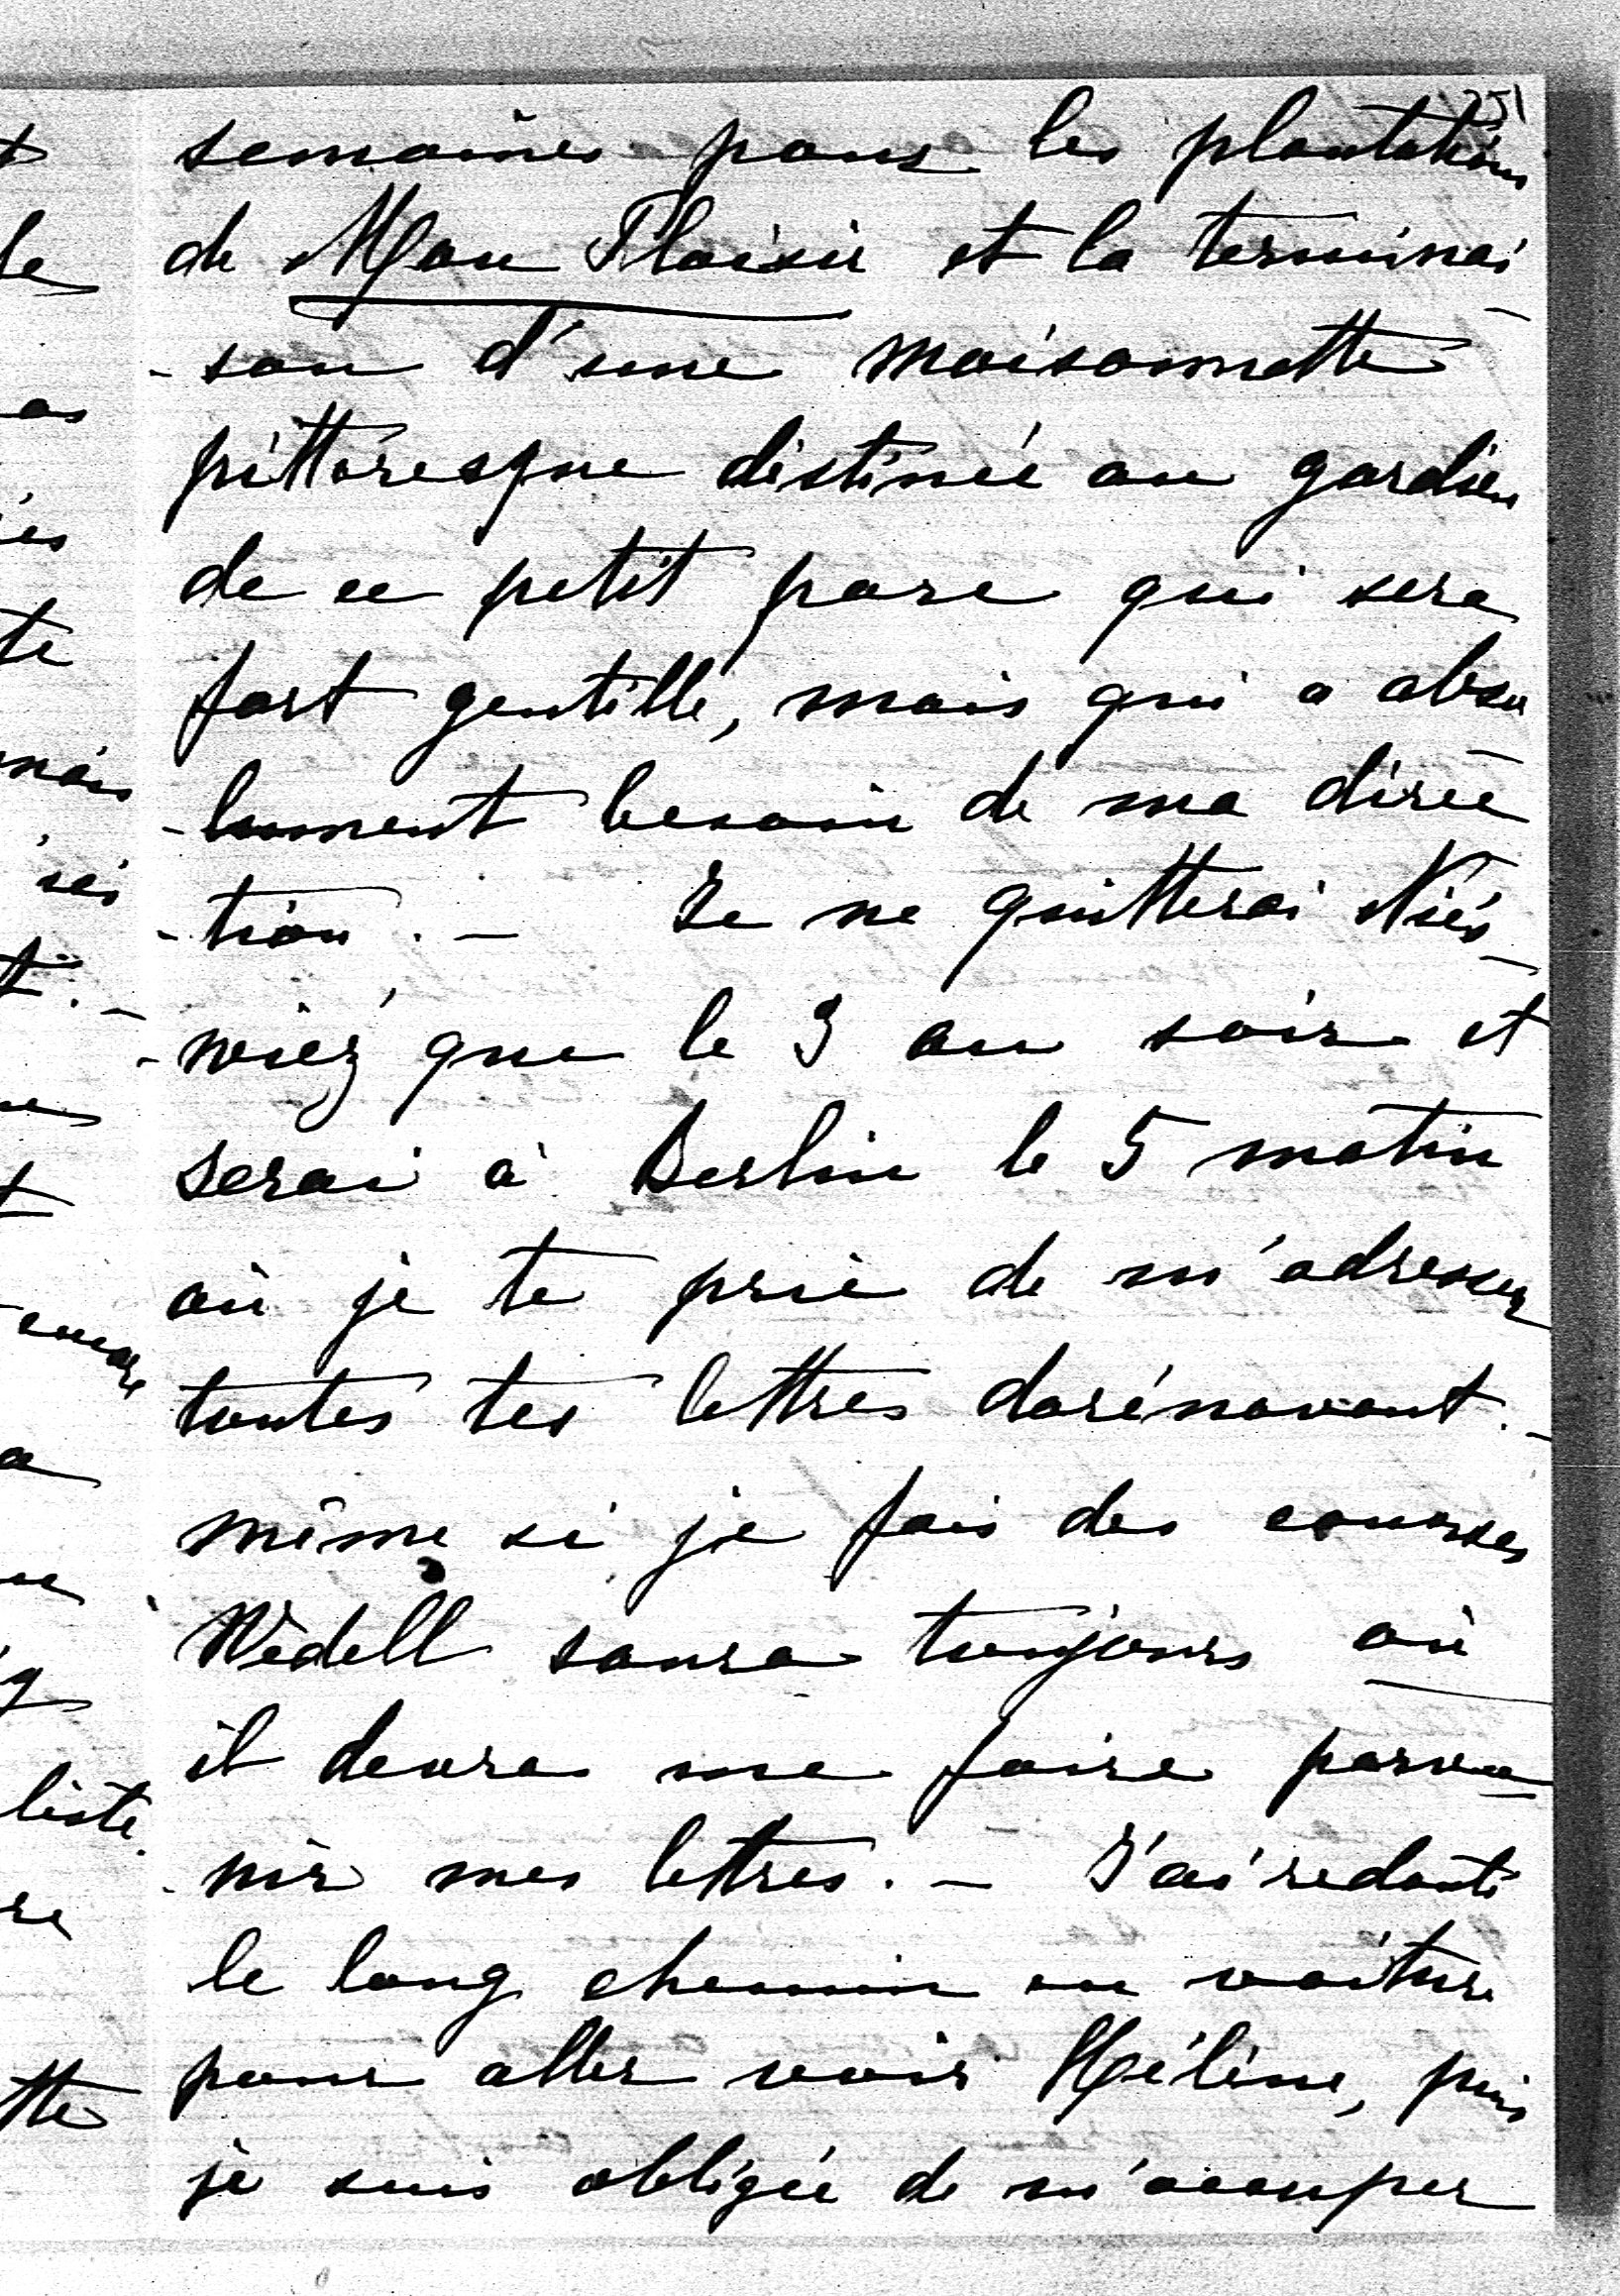 251
semaines pour les plantations
de Mon Plaisir et la terminai
-son d'une maisonnette
pittoresque distinée au gardien
de ce petit parc qui sera
fort gentille, mais qui a absu
-lument besoin de ma direc
-tion. — Je ne quitterai Niés
-wiez que le 3 au soir et
serai à Berlin le 5 matin
où je te prie de m'adresser
toutes tes lettres dorénavant. —
même si je fais des courses
Wedell saura toujours où
il devra me faire parve
-nir mes lettres. — J'ai redouté
le long chemin en voiture
pour aller voir Hélène, puis
je suis obligée de m'occuper